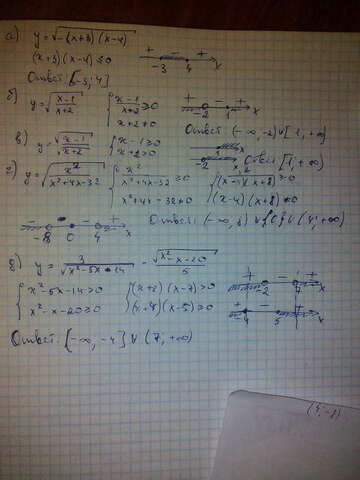 а) y = √-(x+3)(x-4)
(x+3)(x-4) ≤ 0
+ - + -3 4 x
Ответ: [-3; 4]
б) y = √(x-1)/(x+2) { (x-1)/(x+2) ≥ 0 x+2 ≠ 0
+ - + -2 1 x
Ответ (-∞, -2) ∪ [1, +∞)
в) y = √x-1/√x+2 { x-1 ≥ 0 x+2 > 0
1 x -2 x
Ответ [1, +∞)
г) y = √x²/(x²+4x-32) { x²/(x²+4x-32) ≥ 0 x²+4x-32 ≠ 0
(x-4)(x+8) ≠ 0
-8 0 4 x
д) y = 3/√x²-5x-14 - √x²-x-20/5
{ x²-5x-14 > 0 x²-x-20 ≥ 0
{ (x+2)(x-7) > 0 (x+4)(x-5) ≥ 0
+ - + -2 7 x
+ - + -4 5 x
Ответ: [-∞, -4] ∪ (7, +∞)